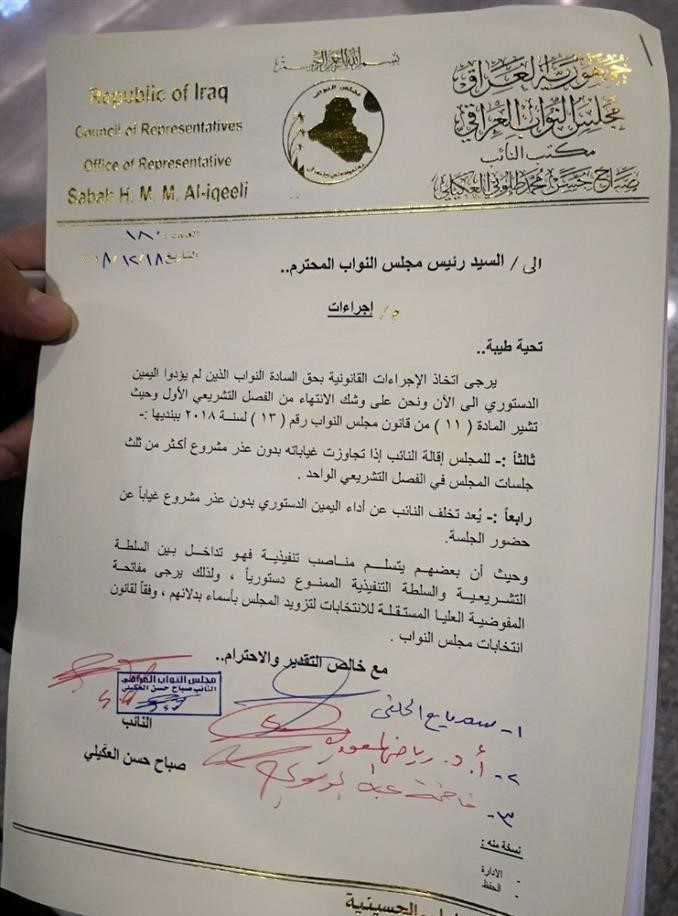 بسم الله الرحمن الرحيم
Republic of Iraq
Council of Representatives
Office of Representative
Sabah H. M. M. Al-iqeeli
مجلس النواب
جمهورية العراق
مجلس النواب العراقي
مكتب النائب
صباح حسن محمد العكيلي
العدد: ١٨٠
التاريخ ١٨/١٢/
الى / السيد رئيس مجلس النواب المحترم..
م / إجراءات
تحية طيبة..
يرجى اتخاذ الإجراءات القانونية بحق السادة النواب الذين لم يؤدوا اليمين
الدستوري الى الأن ونحن على وشك الانتهاء من الفصل التشريعي الأول وحيث
تشير المادة ( ١١ ) من قانون مجلس النواب رقم ( ١٣ ) لسنة ٢٠١٨ ببنديها :-
ثالثاً :- للمجلس إقالة النائب إذا تجاوزت غياباته بدون عذر مشروع أكثر من ثلث
جلسات المجلس في الفصل التشريعي الواحد .
رابعاً :- يُعد تخلف النائب عن أداء اليمين الدستوري بدون عذر مشروع غياباً عن
حضور الجلسة.
وحيث أن بعضهم يتسلم مناصب تنفيذية فهو تداخل بين السلطة
التشريعية والسلطة التنفيذية الممنوع دستورياً ، ولذلك يرجى مفاتحة
المفوضية العليا المستقلة للانتخابات لتزويد المجلس بأسماء بدلائهم ، وفقاً لقانون
انتخابات مجلس النواب .
مع خالص التقدير والاحترام..
مجلس النواب العراقي
النائب صباح حسن العكيلي
النائب
صباح حسن العكيلي
١-
٢- أ.د. رياض
٣- فاطمة
نسخة منه :
- الادارة
- الحفظ